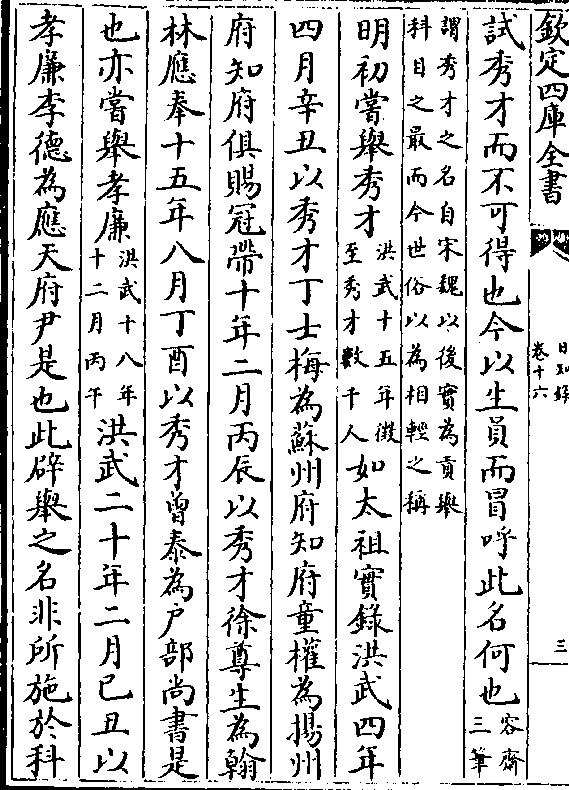 欽定四庫全書
日知錄
卷十六
三
試秀才而不可得也今以生員而冒呼此名何也
容齋
三筆
謂秀才之名自宋魏以後實為貢舉
科目之最而今世俗以為相輕之稱
明初嘗舉秀才
洪武十五年徵
至秀才數千人
如太祖實錄洪武四年
四月辛丑以秀才丁士梅為蘇州府知府童權為揚州
府知府俱賜冠帶十年二月丙辰以秀才徐尊生為翰
林應奉十五年八月丁酉以秀才曾泰為戶部尚書是
也亦嘗舉孝廉
洪武十八年
十二月丙午
洪武二十年二月已丑以
孝廉李德為應天府尹是也此辟舉之名非所施於科